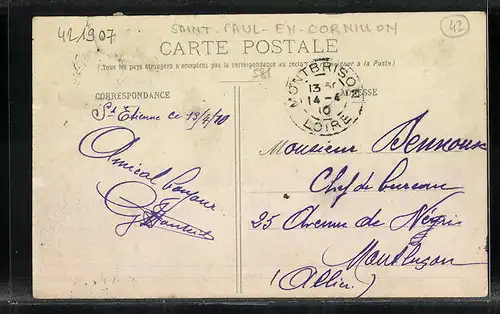 421907
SAINT-PAUL-EN-CORNILLON
42
CARTE POSTALE
(Tous les pays étrangers n'acceptent pas la correspondance au recto. Se renseigner à la Poste)
581
MONTBRISON
13 30
14-4
10
LOIRE
CORRESPONDANCE
ADRESSE
St Etienne ce 13/4/10
Amical bonjour
Monsieur
Chef de bureau
25 Avenue de Néris
Montluçon
(Allier)